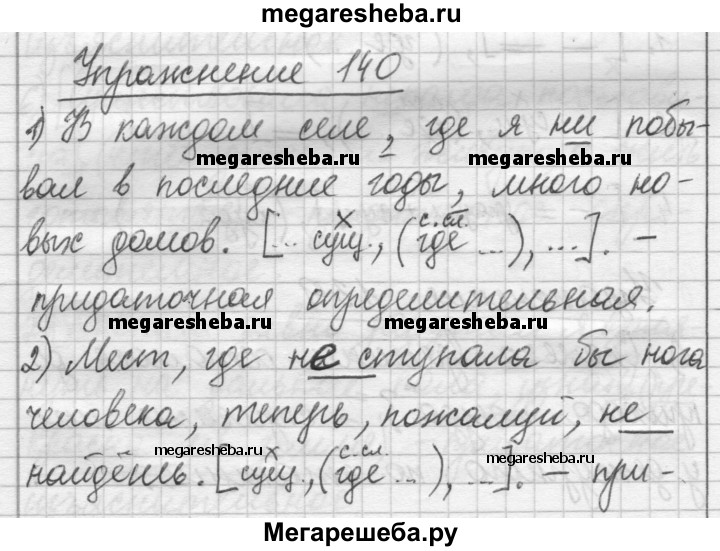 megaresheba.ru
Упражнение 140
1) В каждом селе, где я ни побы-
megaresheba.ru megaresheba.ru
вал в последние годы, много но-
вых домов. [... сущ., (где ...), ...]. –
х с.сл.
придаточная определительная.
megaresheba.ru megaresheba.ru
2) Мест, где не ступала бы нога
человека, теперь, пожалуй, не
megaresheba.ru х с.сл. megaresheba.ru
найдёшь. [сущ., (где ...), ...]. – при-
Мегарешеба.ру